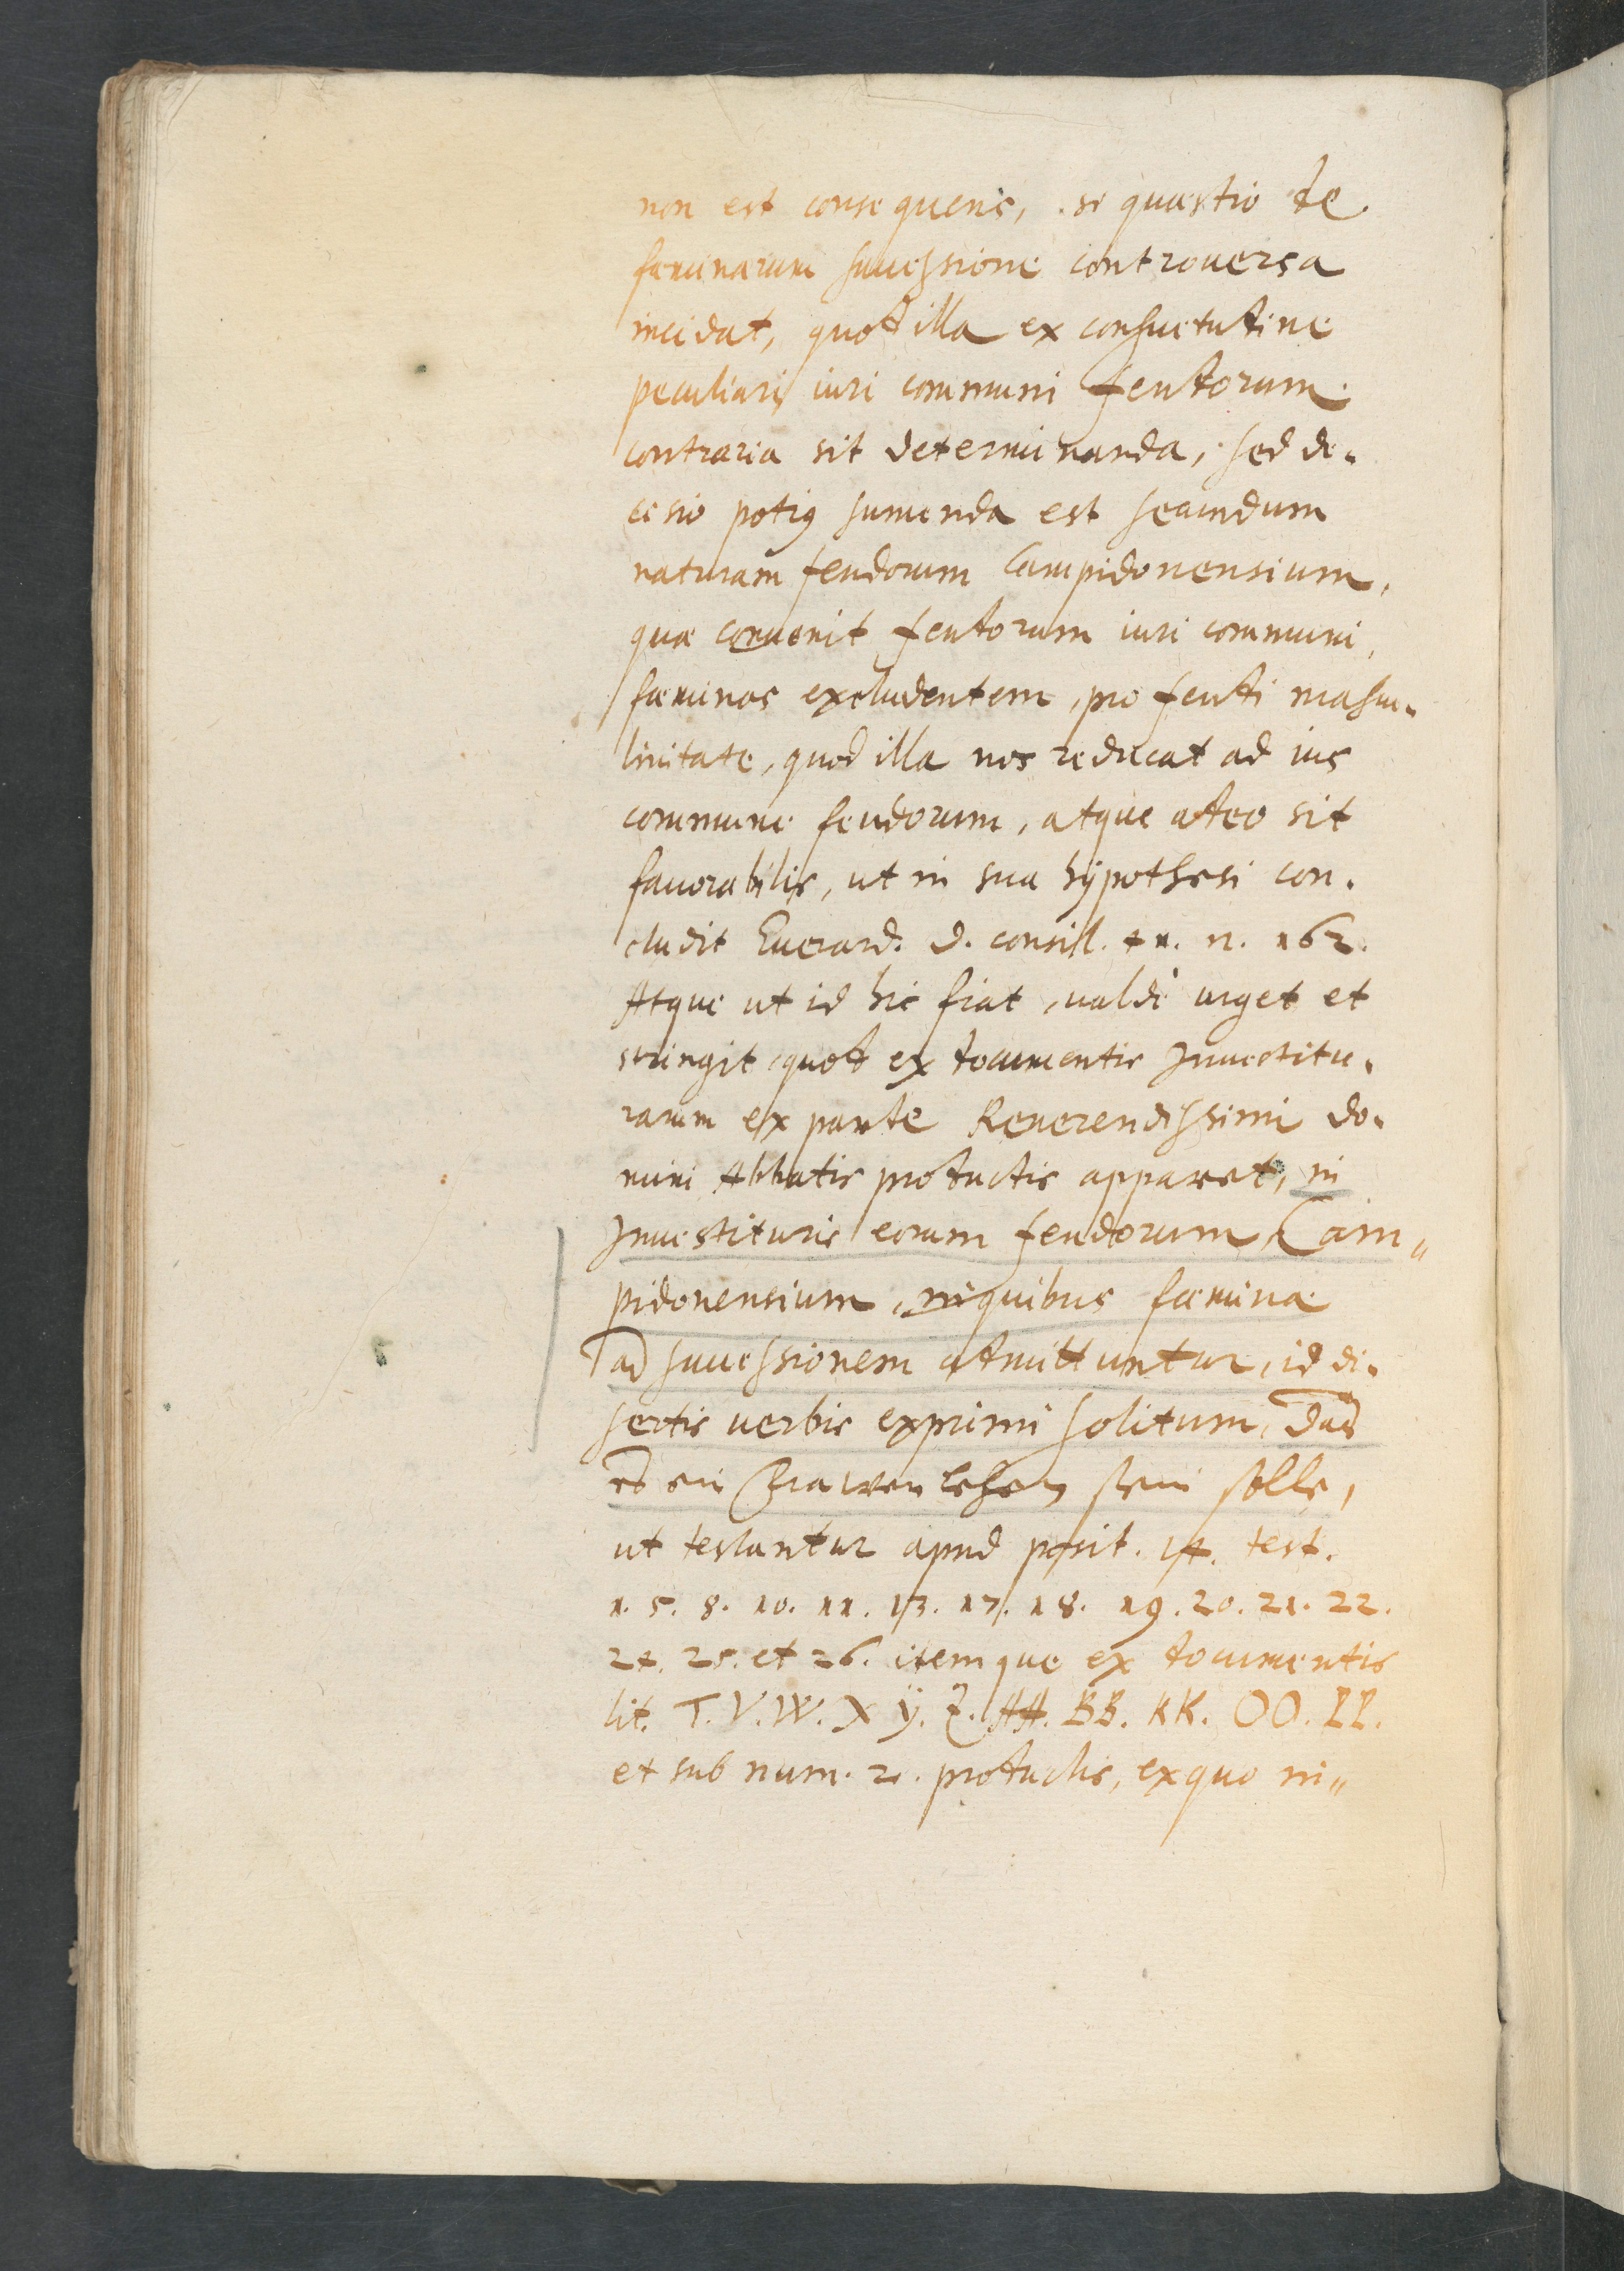 non est consequens, si quæstio de
fæminarum successione controuersa
incidat, quod illa ex consuetudine
peculiari iuri communi feudorum
contraria sit determinanda, sed de-
cisio potius sumenda est secundum
naturam feudorum Campidonensium,
quæ conuenit feudorum iuri communi,
fæminas excludentem, pro feudi mascu-
linitate, quod illa nos reducat ad ius
commune feudorum, atque adeo sit
fauorabilis, ut in sua hÿpothesi con-
cludit Euerard. d. consil. 41. n. 162.
Atque ut id hic fiat, ualdè urget et
stringit, quod ex documentis Inuestitu-
rarum ex parte Reuerendissimi do-
mini Abbatis productis apparet, in
Inuestituris eorum feudorum Cam„
pidonensium, in quibus fæminæ
ad successionem admittuntur, id di-
sertis uerbis exprimi solitum, das
es ein Frawen lehen sein solle,
ut testantur apud posit. 14. test.
1. 5. 8. 10. 11. 13. 17. 18. 19. 20. 21. 22.
24. 25. et 26. itemque ex documentis
lit. T. V. W. X ÿ. Z. AA. BB. KK. OO. LL.
et sub num. 2. productis, ex quo in„